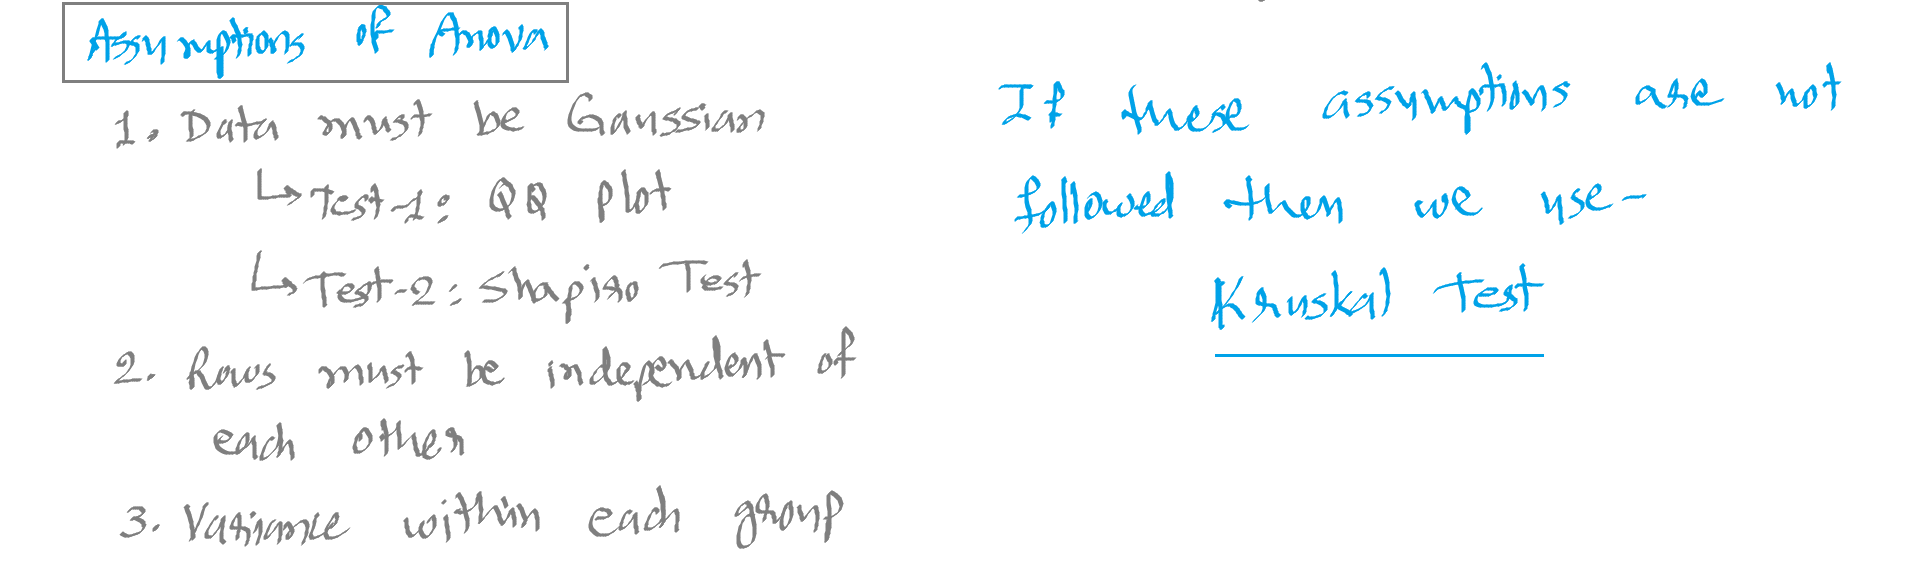 Assumptions of Anova
1. Data must be Gaussian
↳ Test-1: QQ plot
↳ Test-2: Shapiro Test
2. Rows must be independent of
each other
3. Variance within each group
If these assumptions are not
followed then we use-
Kruskal Test